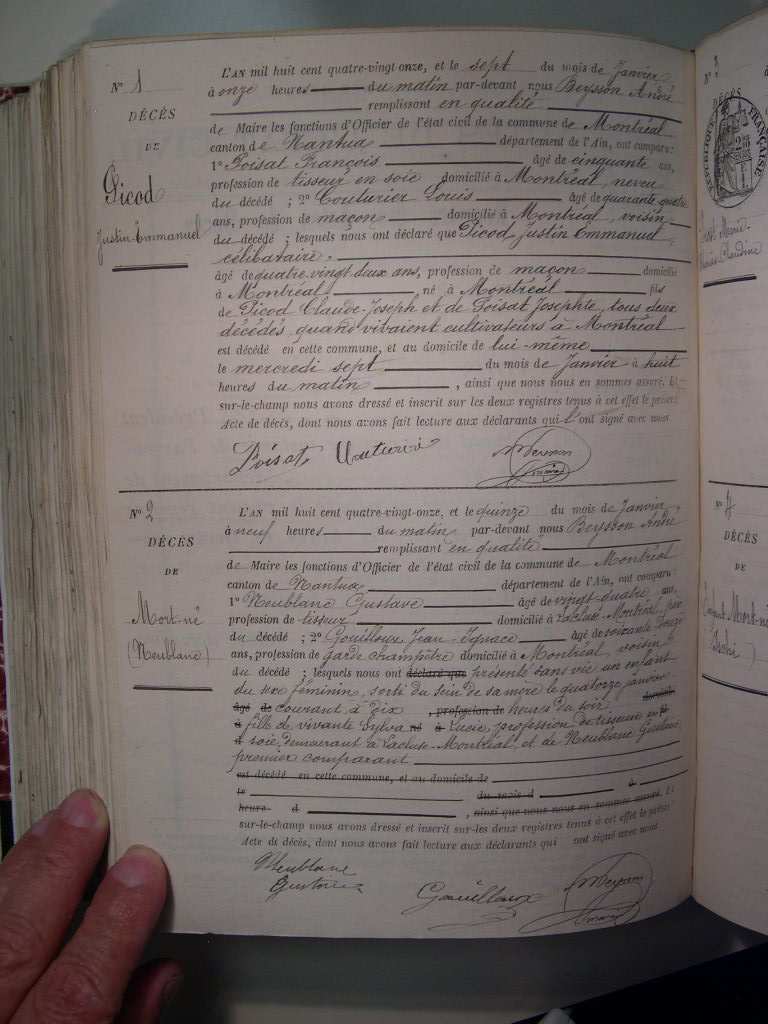 N° 1
DÉCÈS
DE
Picod
Justin-Emmanuel
L'AN mil huit cent quatre-vingt-onze, et le sept du mois de Janvier
à onze heures du matin par-devant nous Beysson André
remplissant en qualité
de Maire les fonctions d'Officier de l'état civil de la commune de Montréal
canton de Nantua département de l'Ain, ont comparu:
1° Poisat François âgé de cinquante ans,
profession de tisseur en soie domicilié à Montréal, neveu
du décédé ; 2° Couturier Louis âgé de quarante quatre
ans, profession de maçon domicilié à Montréal, voisin
du décédé ; lesquels nous ont déclaré que Picod Justin Emmanuel
célibataire,
âgé de quatre vingt deux ans, profession de maçon domicilié
à Montréal né à Montréal fils
de Picod Claude-Joseph et de Poisat Josephte, tous deux
décédés quand vivaient cultivateurs à Montréal
est décédé en cette commune, et au domicile de lui-même
le mercredi sept du mois de Janvier à huit
heures du matin, ainsi que nous nous en sommes assuré. Et
sur-le-champ nous avons dressé et inscrit sur les deux registres tenus à cet effet le présent
Acte de décès, dont nous avons fait lecture aux déclarants qui l'ont signé avec nous
Poisat Couturier
N° 2
DÉCÈS
DE
Mort-né
(Neublanc)
L'AN mil huit cent quatre-vingt-onze, et le quinze du mois de Janvier,
à neuf heures du matin par-devant nous Beysson André
remplissant en qualité
de Maire les fonctions d'Officier de l'état civil de la commune de Montréal
canton de Nantua département de l'Ain, ont comparu:
1° Neublanc Gustave âgé de vingt-quatre ans,
profession de tisseur domicilié à Lacluse-Montréal, père
du décédé ; 2° Gouilloux Jean-Ignace âgé de soixante douze
ans, profession de garde champêtre domicilié à Montréal, voisin
du décédé ; lesquels nous ont déclaré que présenté sans vie un enfant
du sexe féminin, sorti du sein de sa mère le quatorze janvier
âgé de courant à dix, profession de heures du soir domicilié
à fille de vivante Sylva né à Lucie, profession de tisseuse en fils
d soie, demeurant à Lacluse-Montréal, et de Neublanc Gustave
premier comparant
est décédé en cette commune, et au domicile de
le du mois d à
heure d, ainsi que nous nous en sommes assuré. Et
sur-le-champ nous avons dressé et inscrit sur les deux registres tenus à cet effet le présent
Acte de décès, dont nous avons fait lecture aux déclarants qui ont signé avec nous
Neublanc
Gustave
Gouilloux
N° 3
DÉCÈS
RÉPUBLIQUE FRANÇAISE
Claudine
N° 4
DÉCÈS
DE
Mort-né